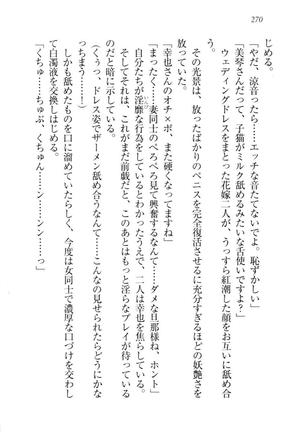 270
じめる。
「やだ、涼音ったら……エッチな音たてないでよ。恥ずかしい」
「美琴さんだって、子猫がミルク舐めるみたいな舌使いですよ」
ウェディングドレスをまとった花嫁二人が、うっすら紅潮した顔をお互いに舐め合う。
その光景は、放ったばかりのペニスを完全復活させるに充分すぎるほどの妖艶さを放っていた。
「幸也さんのオチ×ポ、また硬くなってますね」
「まったく、妻同士のぺろぺろ見て興奮するなんて……ダメな旦那様ね、ホント」
自分たちが淫靡な行為をしているくせに、そんなことを言って、二人は幸也を焦らしている。
そしてそれは、これがまだ前戯だと、このあとはもっと淫らなプレイが待っているのだと暗に示している。
（くぅっ、ドレス姿でザーメン舐め合うなんて……こんなの見せられたらたまっちまう……！）
しかも舐めたものを口に溜めていたらしく、今度は女同士で濃厚な口づけを交わして白濁液を交換しはじめる。
「くちゅ……ちゅぷ、くちゅん……ン……ンン……っ」